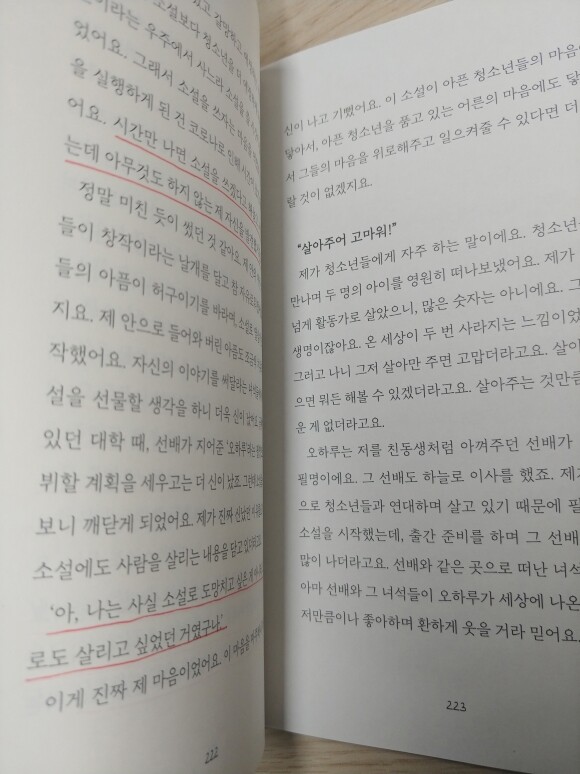 소설보다 청소년을 더
이라는 우주에서 사느라 소설을
었어요. 그래서 소설을 쓰자는 마음을
을 실행하게 된 건 코로나로 인해
어요. 시간만 나면 소설을 쓰겠다고
는데 아무것도 하지 않는 제 자신을
정말 미친 듯이 썼던 것 같아요. 제
들이 창작이라는 날개를 달고 참
들의 아픔이 허구이기를 바라며, 소설을
지요. 제 안으로 들어와 버린 아픔도
작했어요. 자신의 이야기를 써달라는
설을 선물할 생각을 하니 더욱 신이
있던 대학 때, 선배가 지어준 '오하루'라는
뷔할 계획을 세우고는 더 신이 났죠.
보니 깨닫게 되었어요. 제가 진짜
소설에도 사람을 살리는 내용을 담고
'아, 나는 사실 소설로 도망치고 싶은 게
로도 살리고 싶었던 거였구나.'
이게 진짜 제 마음이었어요. 이 마음을
222
신이 나고 기뻤어요. 이 소설이 아픈 청소년들의 마음에
닿아서, 아픈 청소년을 품고 있는 어른의 마음에도 닿
서 그들의 마음을 위로해주고 일으켜줄 수 있다면 더
랄 것이 없겠지요.
"살아주어 고마워!"
제가 청소년들에게 자주 하는 말이에요. 청소년
만나며 두 명의 아이를 영원히 떠나보냈어요. 제가
넘게 활동가로 살았으니, 많은 숫자는 아니에요. 그
생명이잖아요. 온 세상이 두 번 사라지는 느낌이었
그러고 나니 그저 살아만 주면 고맙더라고요. 살아
으면 뭐든 해볼 수 있겠더라고요. 살아주는 것만큼
운 게 없더라고요.
오하루는 저를 친동생처럼 아껴주던 선배가
필명이에요. 그 선배도 하늘로 이사를 했죠. 제가
으로 청소년들과 연대하며 살고 있기 때문에 필
소설을 시작했는데, 출간 준비를 하며 그 선배
많이 나더라고요. 선배와 같은 곳으로 떠난 녀석
아마 선배와 그 녀석들이 오하루가 세상에 나온
저만큼이나 좋아하며 환하게 웃을 거라 믿어요.
223